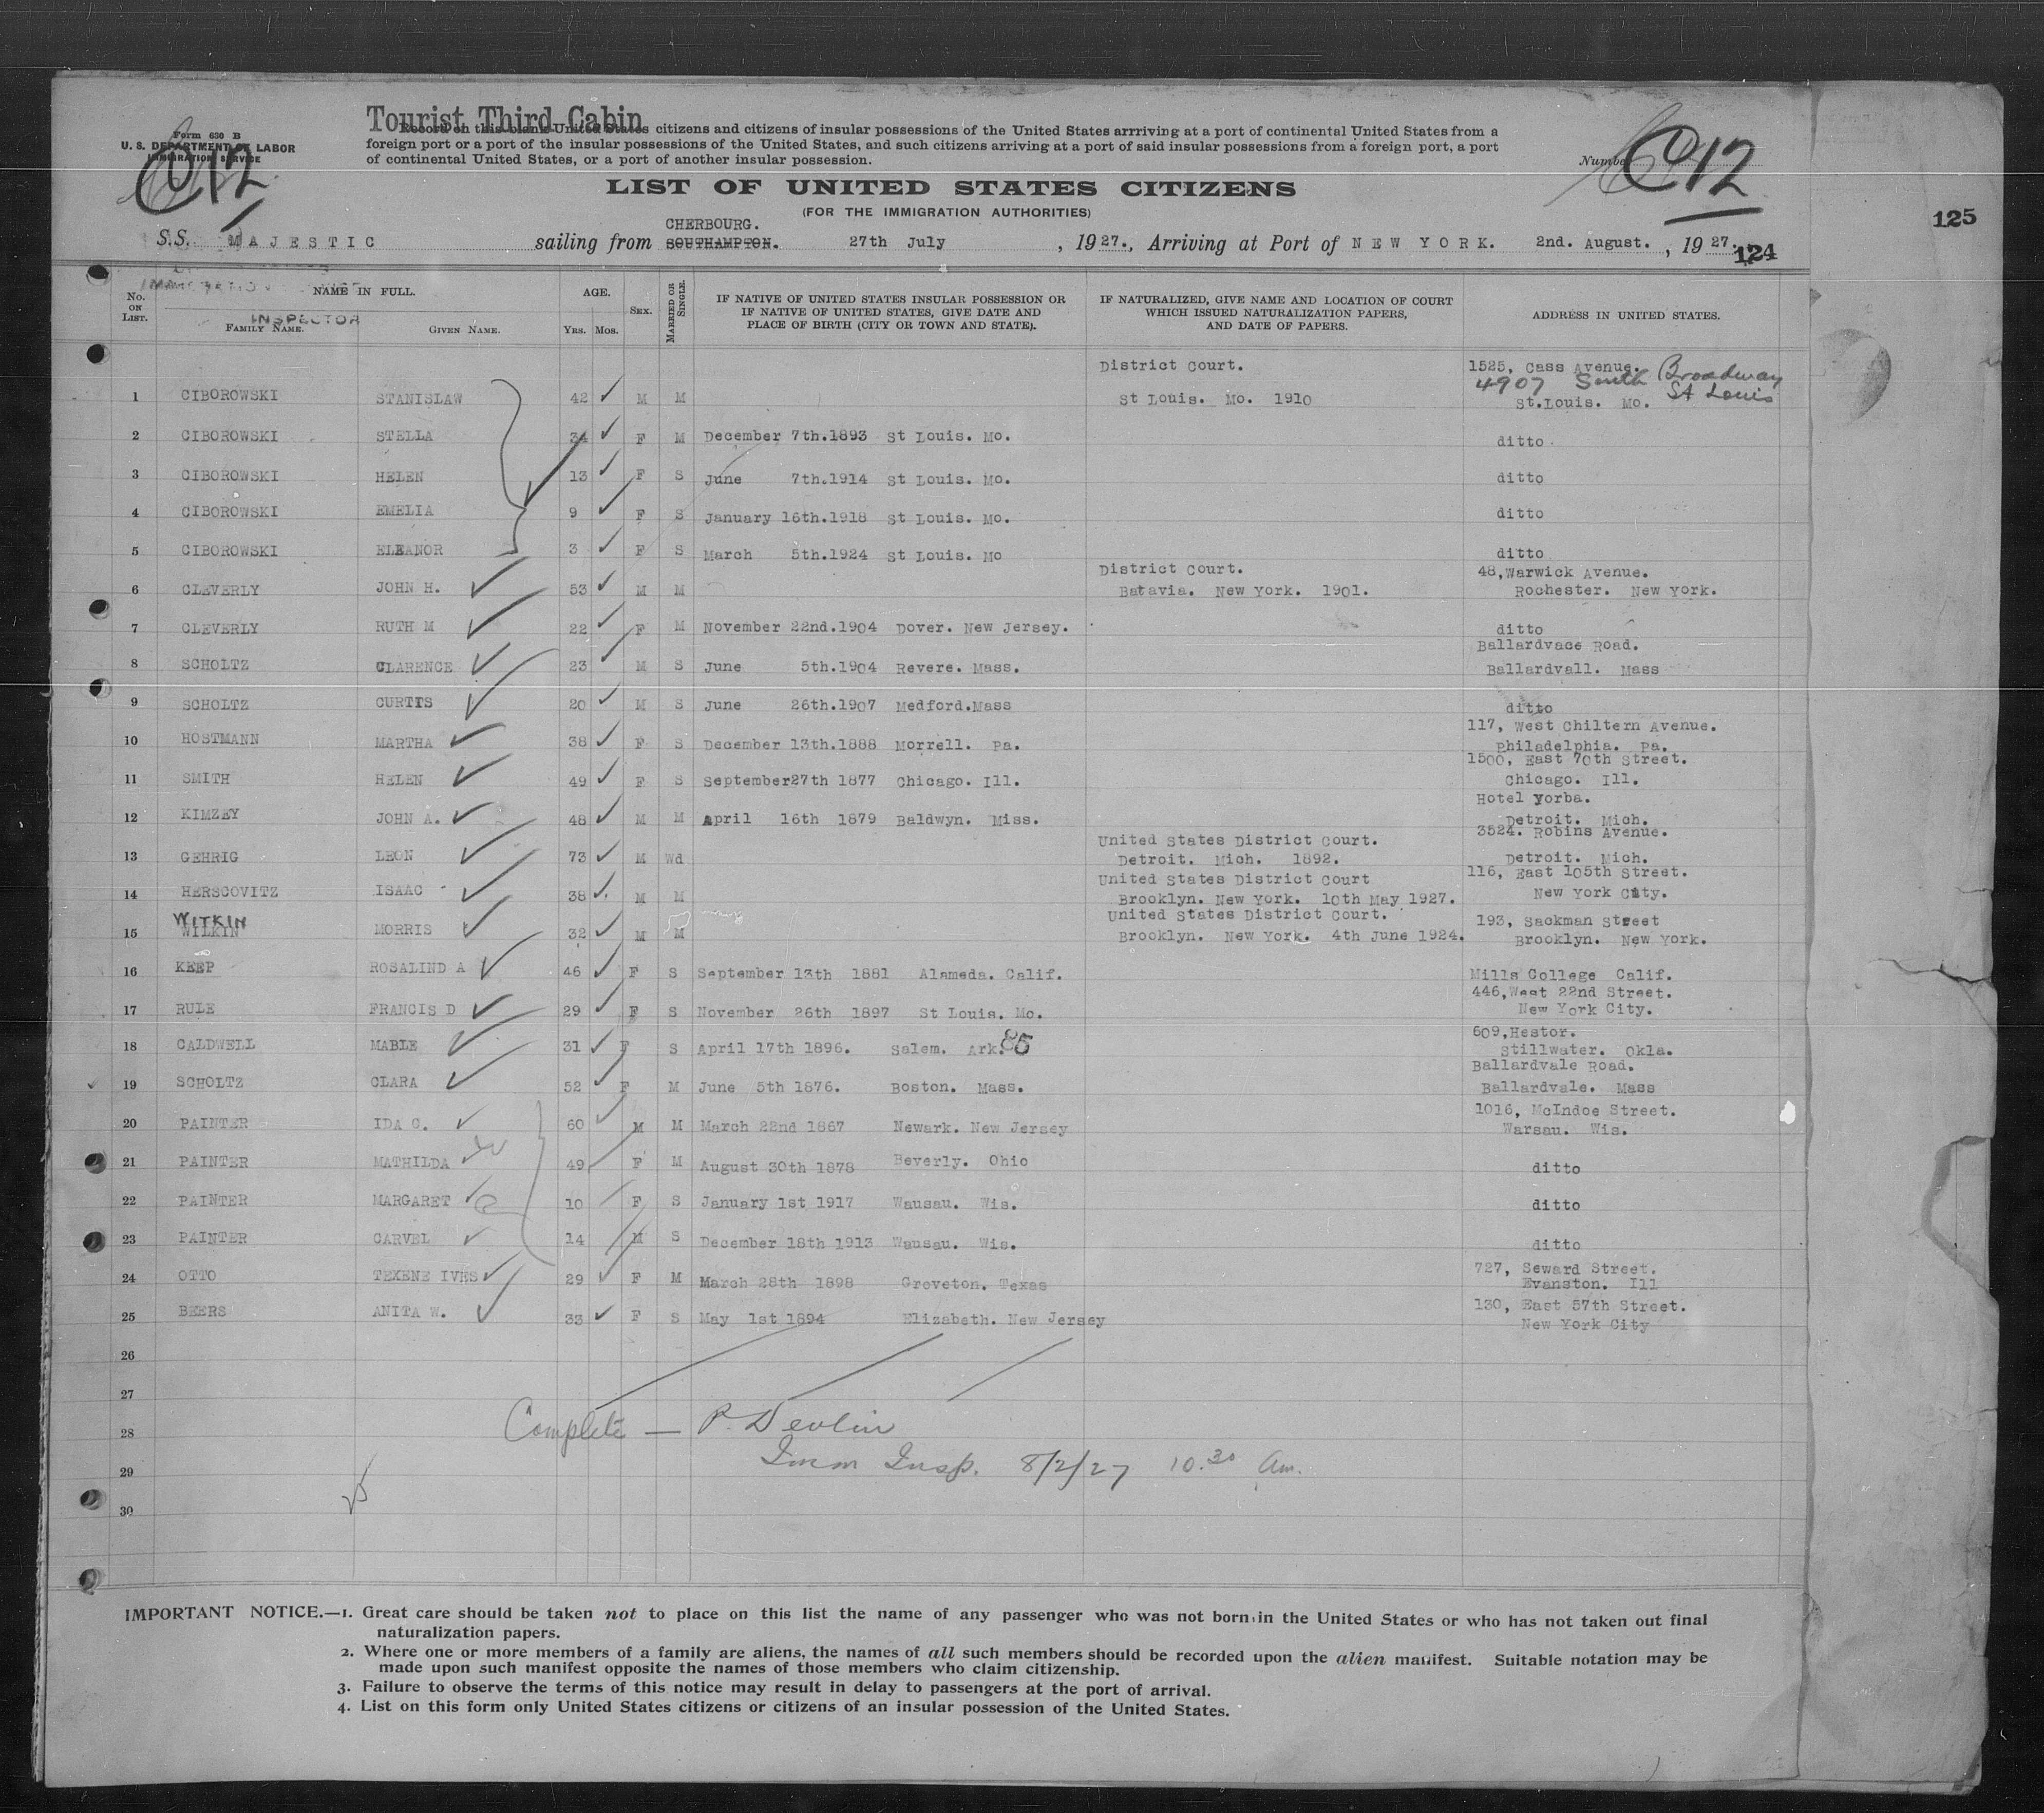 Tourist Third Cabin
Form 630 B
U. S. DEPARTMENT OF LABOR
IMMIGRATION SERVICE
C 12
Record on this blank United States citizens and citizens of insular possessions of the United States arrriving at a port of continental United States from a
foreign port or a port of the insular possessions of the United States, and such citizens arriving at a port of said insular possessions from a foreign port, a port
of continental United States, or a port of another insular possession.
Number C 12
LIST OF UNITED STATES CITIZENS
(FOR THE IMMIGRATION AUTHORITIES)
125
CHERBOURG.
S.S. MAJESTIC sailing from SOUTHAMPTON. 27th July , 1927., Arriving at Port of NEW YORK. 2nd. August. , 1927.
124
INSPECTOR
No. ON LIST. NAME IN FULL. FAMILY NAME. GIVEN NAME. AGE. YRS. MOS. SEX. MARRIED OR SINGLE. IF NATIVE OF UNITED STATES INSULAR POSSESSION OR IF NATIVE OF UNITED STATES, GIVE DATE AND PLACE OF BIRTH (CITY OR TOWN AND STATE). IF NATURALIZED, GIVE NAME AND LOCATION OF COURT WHICH ISSUED NATURALIZATION PAPERS, AND DATE OF PAPERS. ADDRESS IN UNITED STATES.
District Court. 1525, Cass Avenue.
4907 South Broadway St Louis
1 CIBOROWSKI STANISLAW 42 M M St Louis. Mo. 1910 St.Louis. Mo.
2 CIBOROWSKI STELLA 34 F M December 7th.1893 St Louis. Mo. ditto
3 CIBOROWSKI HELEN 13 F S June 7th.1914 St Louis. Mo. ditto
4 CIBOROWSKI EMELIA 9 F S January 16th.1918 St Louis. Mo. ditto
5 CIBOROWSKI ELEANOR 3 F S March 5th.1924 St Louis. Mo ditto
District Court. 48,Warwick Avenue.
6 CLEVERLY JOHN H. 53 M M Batavia. New York. 1901. Rochester. New York.
7 CLEVERLY RUTH M 22 F M November 22nd.1904 Dover. New Jersey. ditto
Ballardvace Road.
8 SCHOLTZ CLARENCE 23 M S June 5th.1904 Revere. Mass. Ballardvall. Mass
9 SCHOLTZ CURTIS 20 M S June 26th.1907 Medford.Mass ditto
117, West Chiltern Avenue.
10 HOSTMANN MARTHA 38 F S December 13th.1888 Morrell. Pa. Philadelphia. Pa.
1500, East 70th Street.
11 SMITH HELEN 49 F S September27th 1877 Chicago. Ill. Chicago. Ill.
Hotel Yorba.
12 KIMZEY JOHN A. 48 M M April 16th 1879 Baldwyn. Miss. Detroit. Mich.
United States District Court. 3524. Robins Avenue.
13 GEHRIG LEON 73 M Wd Detroit. Mich. 1892. Detroit. Mich.
United States District Court 116, East 105th Street.
14 HERSCOVITZ ISAAC 38 M M Brooklyn. New York. 10th May 1927. New York City.
WITKIN United States District Court. 193, Sackman Street
15 WILKIN MORRIS 32 M M Brooklyn. New York. 4th June 1924. Brooklyn. New York.
16 KEEP ROSALIND A 46 F S September 13th 1881 Alameda. Calif. Mills College Calif.
446,West 22nd Street.
17 RULE FRANCIS D 29 F S November 26th 1897 St Louis. Mo. New York City.
609,Hestor.
18 CALDWELL MABLE 31 F S April 17th 1896. Salem. Ark. 85 Stillwater. Okla.
Ballardvale Road.
19 SCHOLTZ CLARA 52 F M June 5th 1876. Boston. Mass. Ballardvale. Mass
1016, McIndoe Street.
20 PAINTER IDA C. 60 M M March 22nd 1867 Newark. New Jersey Warsau. Wis.
21 PAINTER MATHILDA 49 F M August 30th 1878 Beverly. Ohio ditto
22 PAINTER MARGARET 10 F S January 1st 1917 Wausau. Wis. ditto
23 PAINTER CARVEL 14 M S December 18th 1913 Wausau. Wis. ditto
727, Seward Street.
24 OTTO TEXENE IVES 29 F M March 28th 1898 Groveton. Texas Evanston. Ill
130, East 57th Street.
25 BEERS ANITA W. 33 F S May 1st 1894 Elizabeth. New Jersey New York City
26
27
28 Complete — P. Devlin
29 Imm Insp. 8/2/27 10.30 Am.
30
IMPORTANT NOTICE.—1. Great care should be taken not to place on this list the name of any passenger who was not born in the United States or who has not taken out final
naturalization papers.
2. Where one or more members of a family are aliens, the names of all such members should be recorded upon the alien manifest. Suitable notation may be
made upon such manifest opposite the names of those members who claim citizenship.
3. Failure to observe the terms of this notice may result in delay to passengers at the port of arrival.
4. List on this form only United States citizens or citizens of an insular possession of the United States.